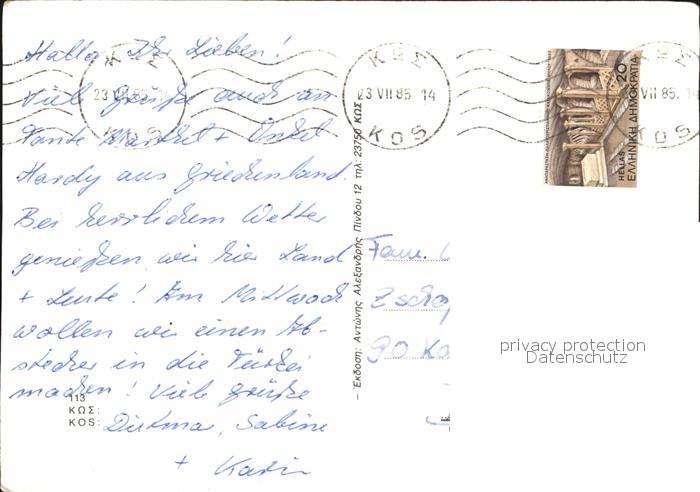 Hallo Ihr Lieben!
Viele Grüße auch an
Tante + Onkel
Hardy aus Griechenland.
Bei herrlichem Wetter
genießen wir hier Land
+ Leute! Am Mittwoch
wollen wir einen Ab-
stecher in die Türkei
machen! Viele Grüße
Dietmar, Sabine
+ Karin
113
ΚΩΣ:
KOS:
ΚΩΣ
23 VII 85. 14
KOS
ΚΩΣ
23 VII 85. 14
KOS
VII 85. 14
KOS
20
HELLAS
ΕΛΛΗΝΙΚΗ ΔΗΜΟΚΡΑΤΙΑ
– Έκδοση: Αντώνης Αλεξανδρής Πίνδου 12 τηλ: 23750 ΚΩΣ
Fam.
Zschop
90 Ka
privacy protection
Datenschutz